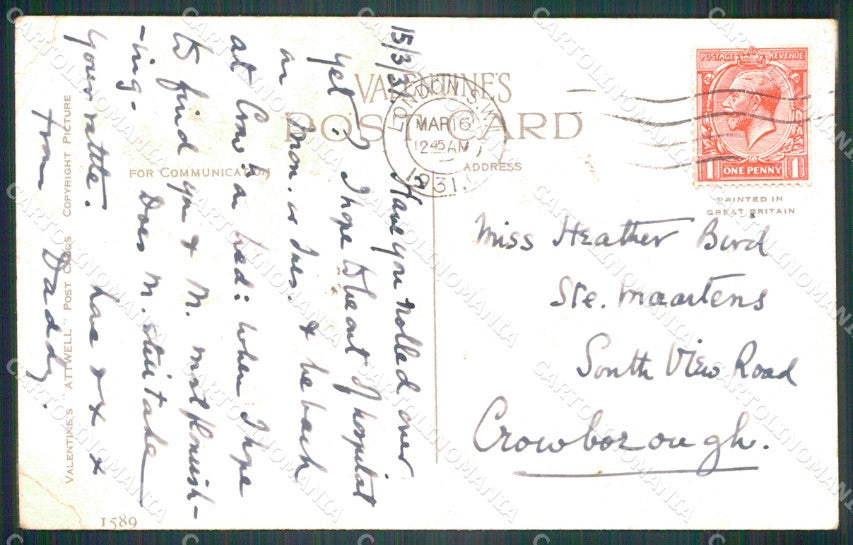 VALENTINE'S
POST CARD
FOR COMMUNICATION
ADDRESS
LONDON S.W.1
MAR 16
12 45 AM
1931
POSTAGE REVENUE
1 ONE PENNY 1
PRINTED IN
GREAT BRITAIN
Miss Heather Bird
Ste. Maartens
South View Road
Crowborough.
15/3/31 Have you rolled over
yet? I hope to be out of hospital
on Mon. or Tues. & be back
at Crow: a Wed: when I hope
to find you & M. most flourish-
-ing. Does M. still take
your rattle. has xx x
from Daddy.
VALENTINE'S "ATTWELL" POST CARDS COPYRIGHT PICTURE
1589
CARTOLINOMANIA